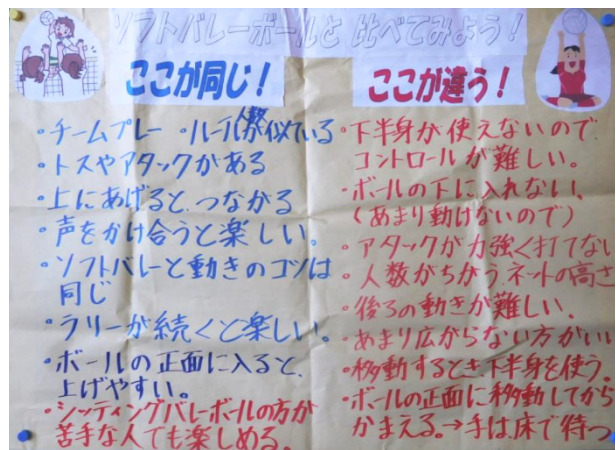 ソフトバレーボールと比べてみよう!
ここが同じ!
・チームプレー ・ルールが似ている
・トスやアタックがある
・上にあげると、つながる
・声をかけ合うと楽しい。
・ソフトバレーと動きのコツは
同じ
・ラリーが続くと楽しい。
・ボールの正面に入ると、
上げやすい。
・シッティングバレーボールの方が
苦手な人でも楽しめる。
ここが違う!
・下半身が使えないので
コントロールが難しい。
・ボールの下に入れない、
(あまり動けないので)
・アタックが力強く打てない
・人数がちがう ネットの高さ
・後ろの動きが難しい、
・あまり広がらない方がいい
・移動するとき下半身を使う。
・ボールの正面に移動してから
かまえる。→手は床で待つ